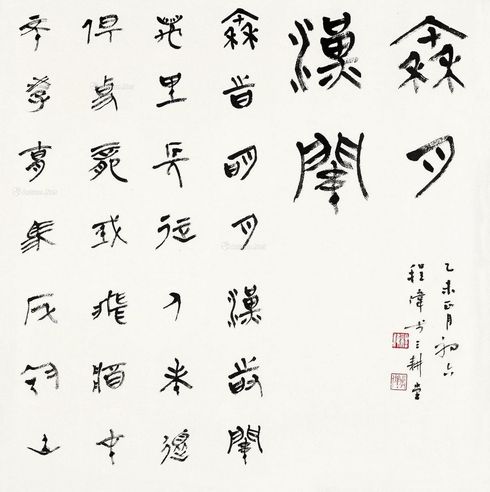 秦月
漢關
秦旹明月漢時關
萬里長征人未還
但使龍城飛將在
不教胡馬度陰山
乙未正月初六
程偉於三耕堂